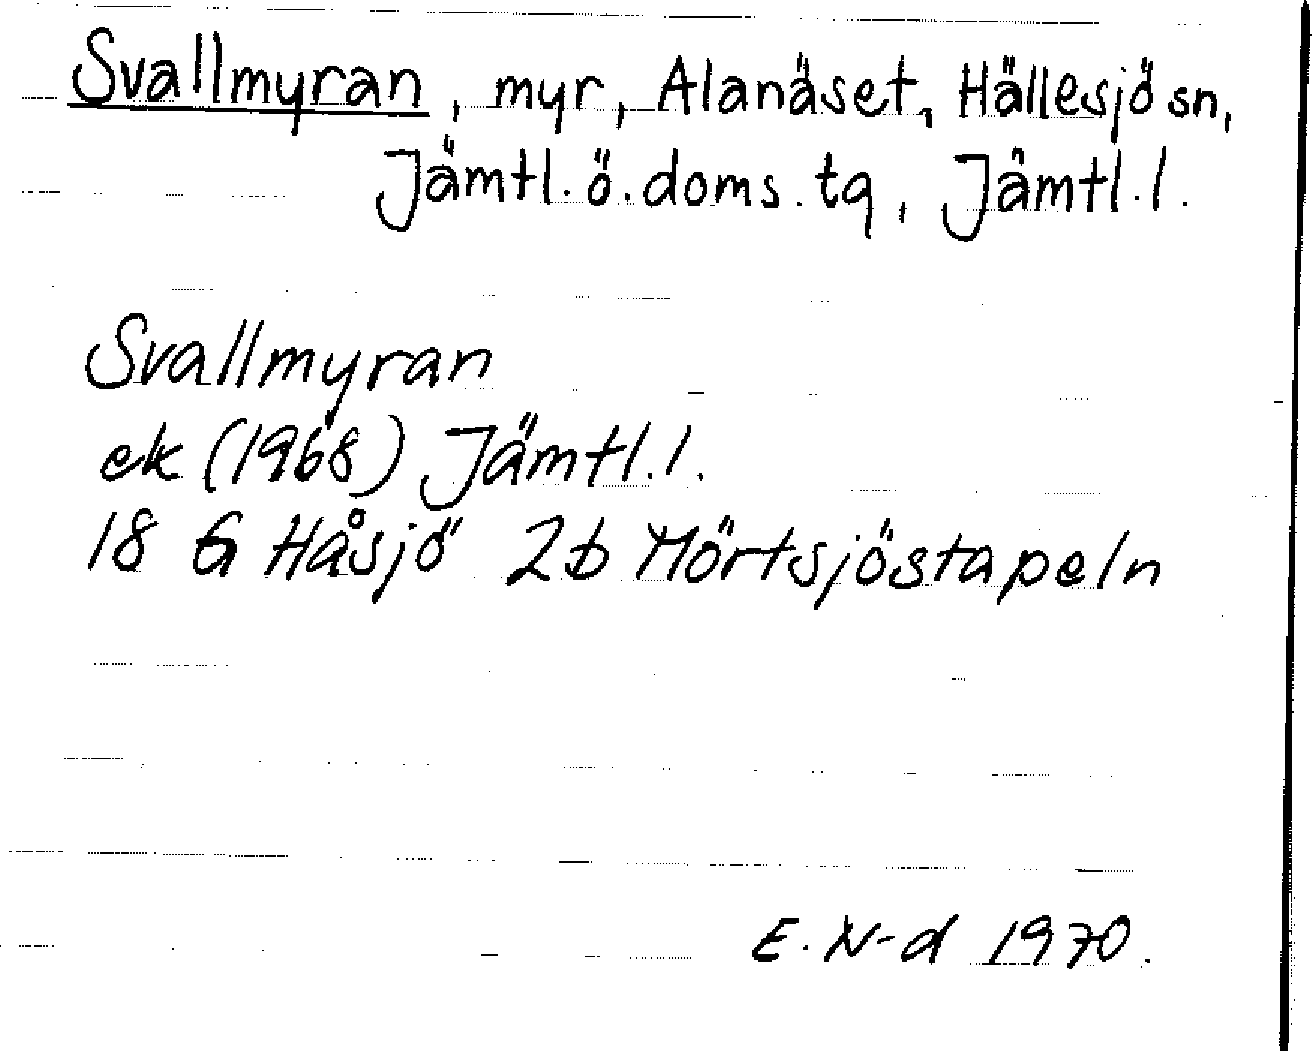 Svallmyran, myr, Alanäset, Hällesjö sn,
Jämtl. ö. doms. tg, Jämtl. l.
Svallmyran
ek (1968) Jämtl. l.
18 G Håsjö 2b Mörtsjöstapeln
E. N-d 1970.